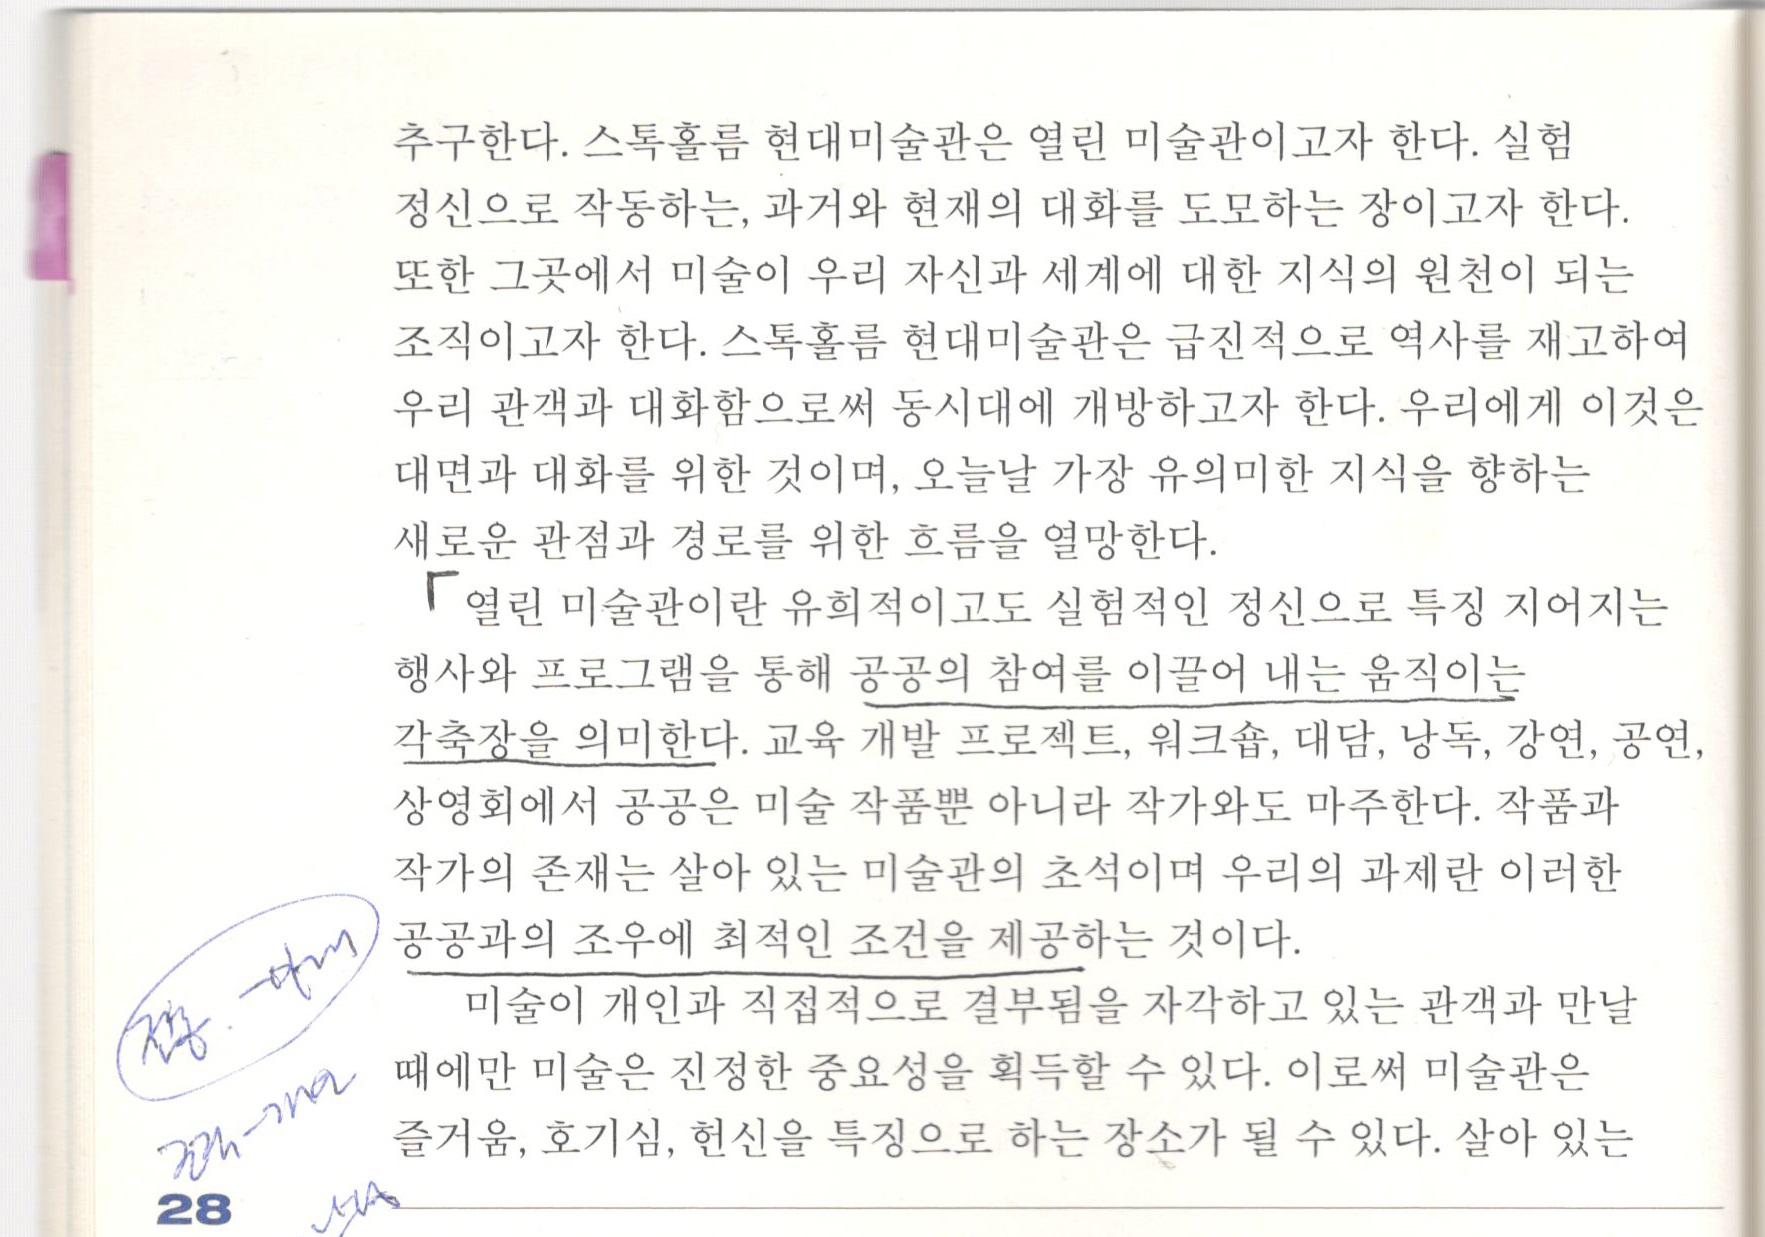 추구한다. 스톡홀름 현대미술관은 열린 미술관이고자 한다. 실험
정신으로 작동하는, 과거와 현재의 대화를 도모하는 장이고자 한다.
또한 그곳에서 미술이 우리 자신과 세계에 대한 지식의 원천이 되는
조직이고자 한다. 스톡홀름 현대미술관은 급진적으로 역사를 재고하여
우리 관객과 대화함으로써 동시대에 개방하고자 한다. 우리에게 이것은
대면과 대화를 위한 것이며, 오늘날 가장 유의미한 지식을 향하는
새로운 관점과 경로를 위한 흐름을 열망한다.
「열린 미술관이란 유희적이고도 실험적인 정신으로 특징 지어지는
행사와 프로그램을 통해 공공의 참여를 이끌어 내는 움직이는
각축장을 의미한다. 교육 개발 프로젝트, 워크숍, 대담, 낭독, 강연, 공연,
상영회에서 공공은 미술 작품뿐 아니라 작가와도 마주한다. 작품과
작가의 존재는 살아 있는 미술관의 초석이며 우리의 과제란 이러한
공공과의 조우에 최적인 조건을 제공하는 것이다.
미술이 개인과 직접적으로 결부됨을 자각하고 있는 관객과 만날
때에만 미술은 진정한 중요성을 획득할 수 있다. 이로써 미술관은
즐거움, 호기심, 헌신을 특징으로 하는 장소가 될 수 있다. 살아 있는
28